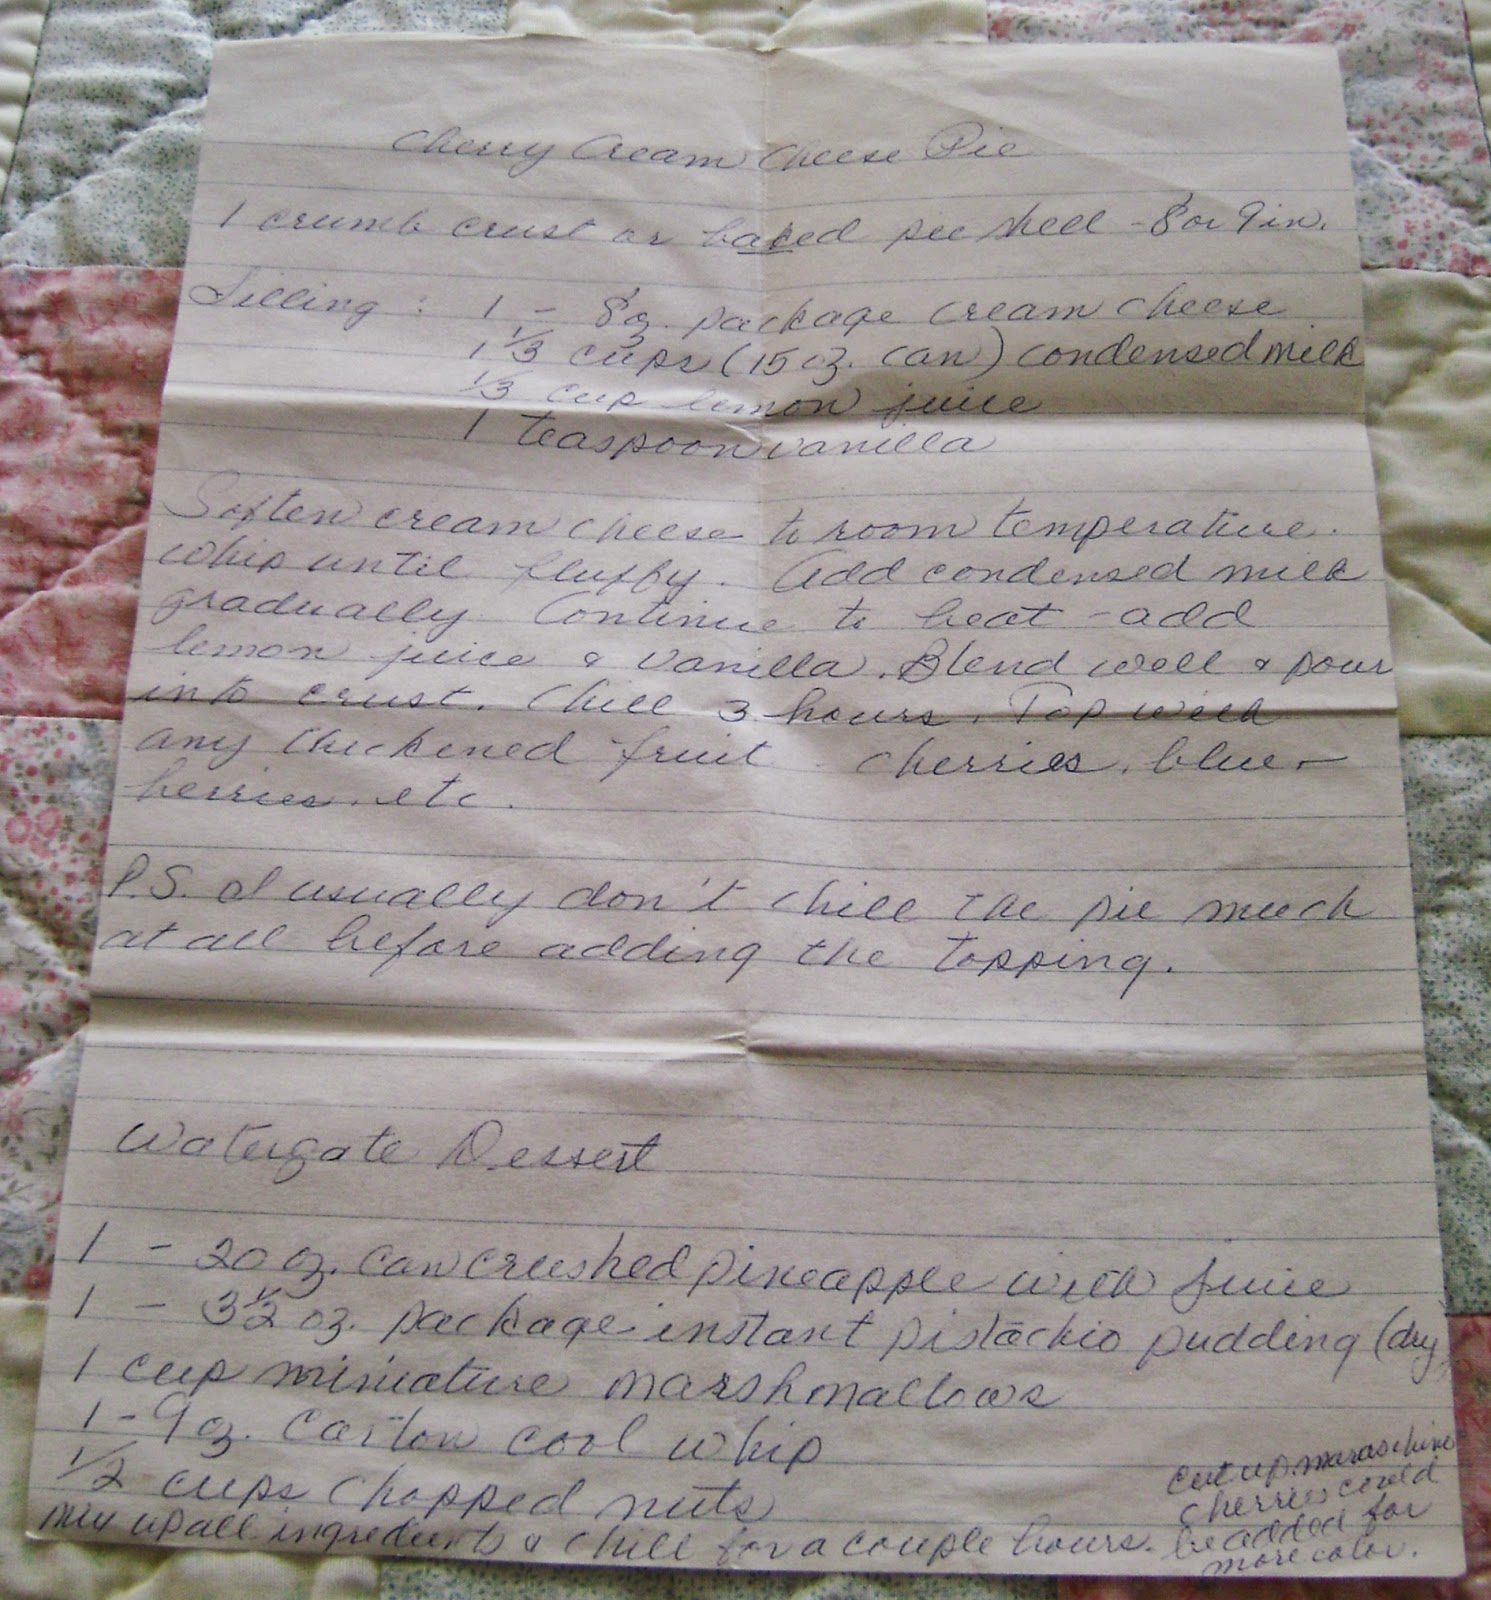 Cherry Cream Cheese Pie
1 crumb crust or baked pie shell - 8 or 9 in.
Filling : 1 - 8 oz. package cream cheese
1 1/3 cups (15 oz. can) condensed milk
1/3 cup lemon juice
1 teaspoon vanilla
Soften cream cheese to room temperature.
Whip until fluffy. Add condensed milk
gradually. Continue to beat - add
lemon juice & vanilla. Blend well & pour
into crust. Chill 3 hours. Top with
any thickened fruit - cherries, blue-
berries, etc.
P.S. I usually don't chill the pie much
at all before adding the topping.
Watergate Dessert
1 - 20 oz. can crushed pineapple with juice
1 - 3 1/2 oz. package instant pistachio pudding (dry)
1 cup miniature marshmallows
1 - 9 oz. carton cool whip
1/2 cups chopped nuts
Mix up all ingredients & chill for a couple hours.
Cut up maraschino
cherries could
be added for
more color.